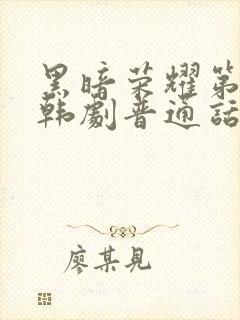 黑暗荣耀第
韩劇普通话
廖某見